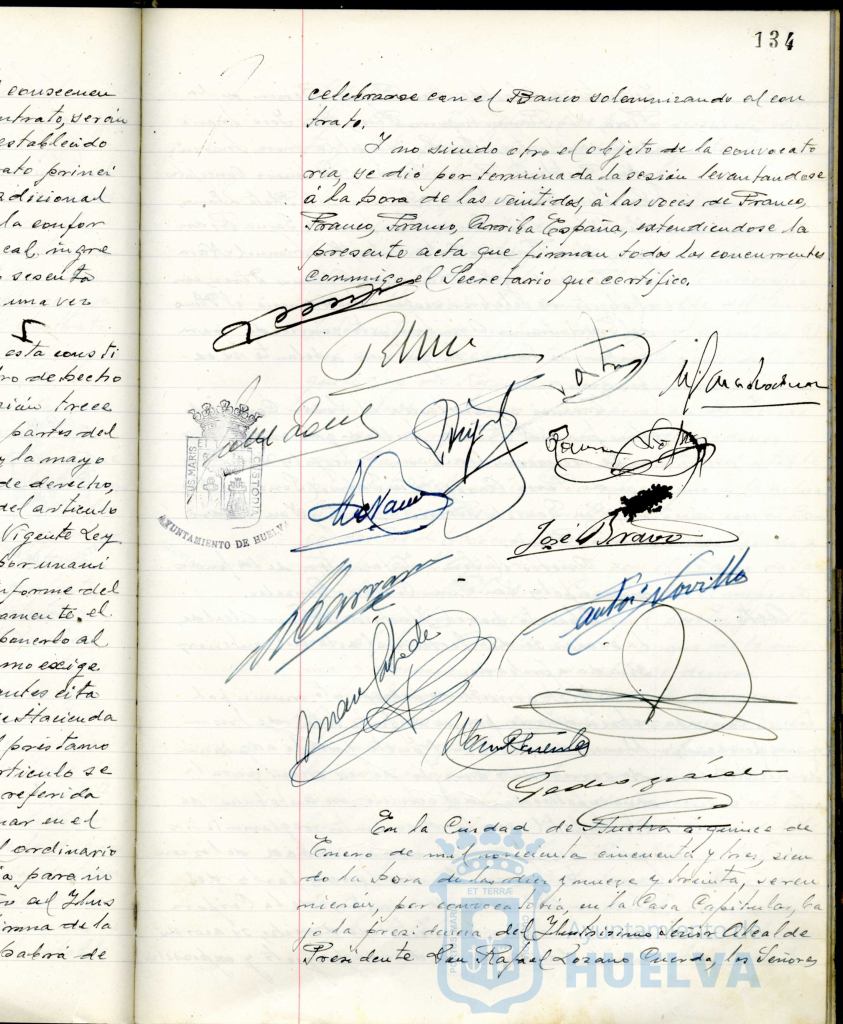 134
consecuen
ntrato, serán
establecido
rato princi
adicional
la confor
cal, ingre
sesenta
una vez
esta consti
ro de hecho
sión trece
partes del
y la mayo
de derecho,
del articulo
Vigente Ley
por unani
nforme del
amente, el
ponerlo al
mo exige
antes cita
e Hacienda
prestamo
rticulo se
referida
nar en el
l ordinario
a para in
al Ylus
irma de la
habrá de
celebrarse con el Banco solemnizando el con
trato.
Y no siendo otro el objeto de la convocato
ria, se dió por terminada la sesión levantandose
á la hora de las veintidos, á las voces de Franco,
Franco, Franco, Arriba España, extendiendose la
presente acta que firman todos los concurrentes
conmigo el Secretario que certifico.
AYUNTAMIENTO DE HUELVA
José Bravo
Antoº Novillo
En la Ciudad de Huelva á quince de
Enero de mil novecientos cincuenta y tres, sien
do la hora de las diez y nueve y treinta, se reu
nieron, por convocatoria, en la Casa Capitular, ba
jo la presidencia del Ylustrisimo Señor Alcalde
Presidente Don Rafael Lozano Cuerda, los Señores
Ayuntamiento de
HUELVA